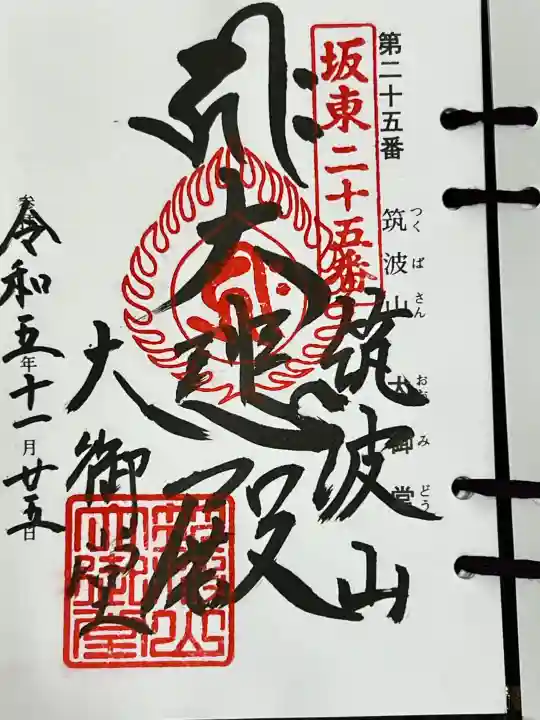 第二十五番
筑波山
つくばさん
大御堂
おおみどう
坂東二十五番
筑波山
大悲殿
大御堂
令和五年十一月廿五日